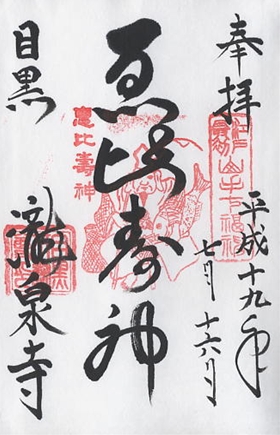 奉拝
江戸最初山手七福神
平成十九年
七月十六日
恵比寿神
惠比壽神
目黒
瀧泉寺